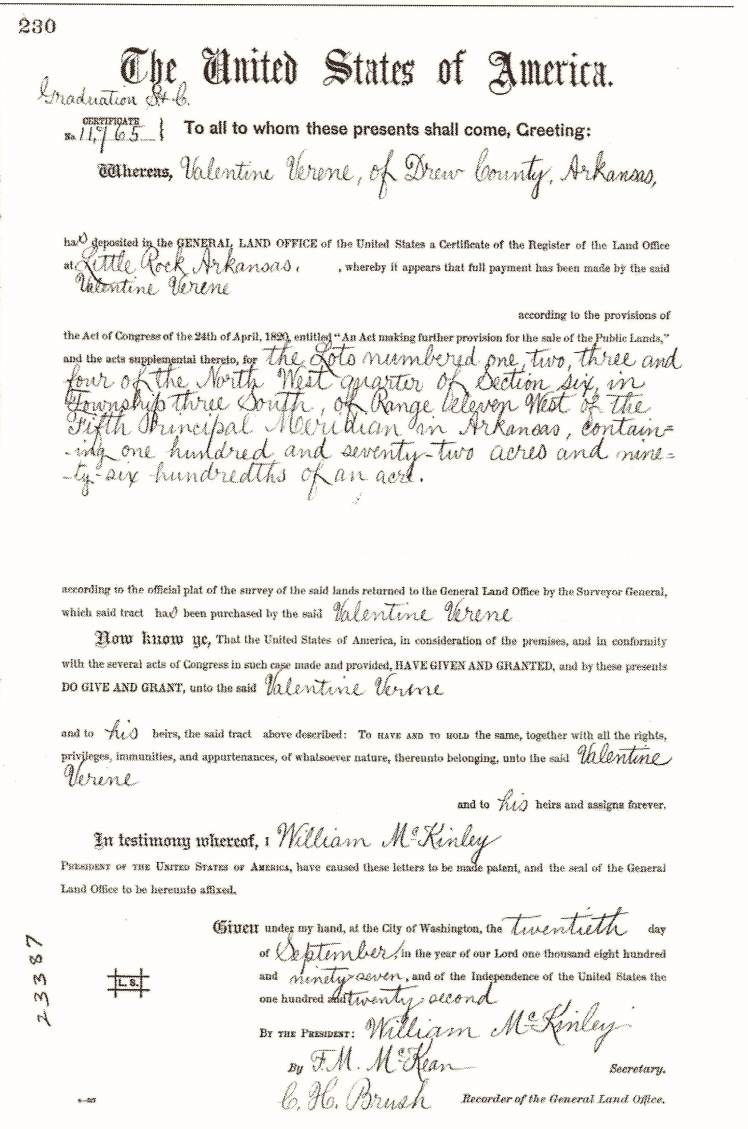 230
The United States of America.
Graduation St C.
CERTIFICATE
No. 11,765 } To all to whom these presents shall come, Greeting:
Whereas, Valentine Verene, of Drew County, Arkansas,
has deposited in the GENERAL LAND OFFICE of the United States a Certificate of the Register of the Land Office
at Little Rock Arkansas. , whereby it appears that full payment has been made by the said
Valentine Verene
according to the provisions of
the Act of Congress of the 24th of April, 1820, entitled "An Act making further provision for the sale of the Public Lands,"
and the acts supplemental thereto, for the Lots numbered one, two, three and
four of the North West quarter of Section six, in
Township three South, of Range eleven West of the
Fifth Principal Meridian in Arkansas, contain=
-ing one hundred and seventy-two acres and nine=
-ty-six hundredths of an acre.
according to the official plat of the survey of the said lands returned to the General Land Office by the Surveyor General,
which said tract has been purchased by the said Valentine Verene
Now know ye, That the United States of America, in consideration of the premises, and in conformity
with the several acts of Congress in such case made and provided, HAVE GIVEN AND GRANTED, and by these presents
DO GIVE AND GRANT, unto the said Valentine Verene
and to his heirs, the said tract above described: TO HAVE AND TO HOLD the same, together with all the rights,
privileges, immunities, and appurtenances, of whatsoever nature, thereunto belonging, unto the said Valentine
Verene
and to his heirs and assigns forever.
In testimony whereof, I William McKinley
PRESIDENT OF THE UNITED STATES OF AMERICA, have caused these letters to be made patent, and the seal of the General
Land Office to be hereunto affixed.
Given under my hand, at the City of Washington, the twentieth day
of September, in the year of our Lord one thousand eight hundred
and ninety seven, and of the Independence of the United States the
one hundred and twenty second
BY THE PRESIDENT: William McKinley
By F. M. McKean Secretary.
C. H. Brush Recorder of the General Land Office.
L. S.
23387